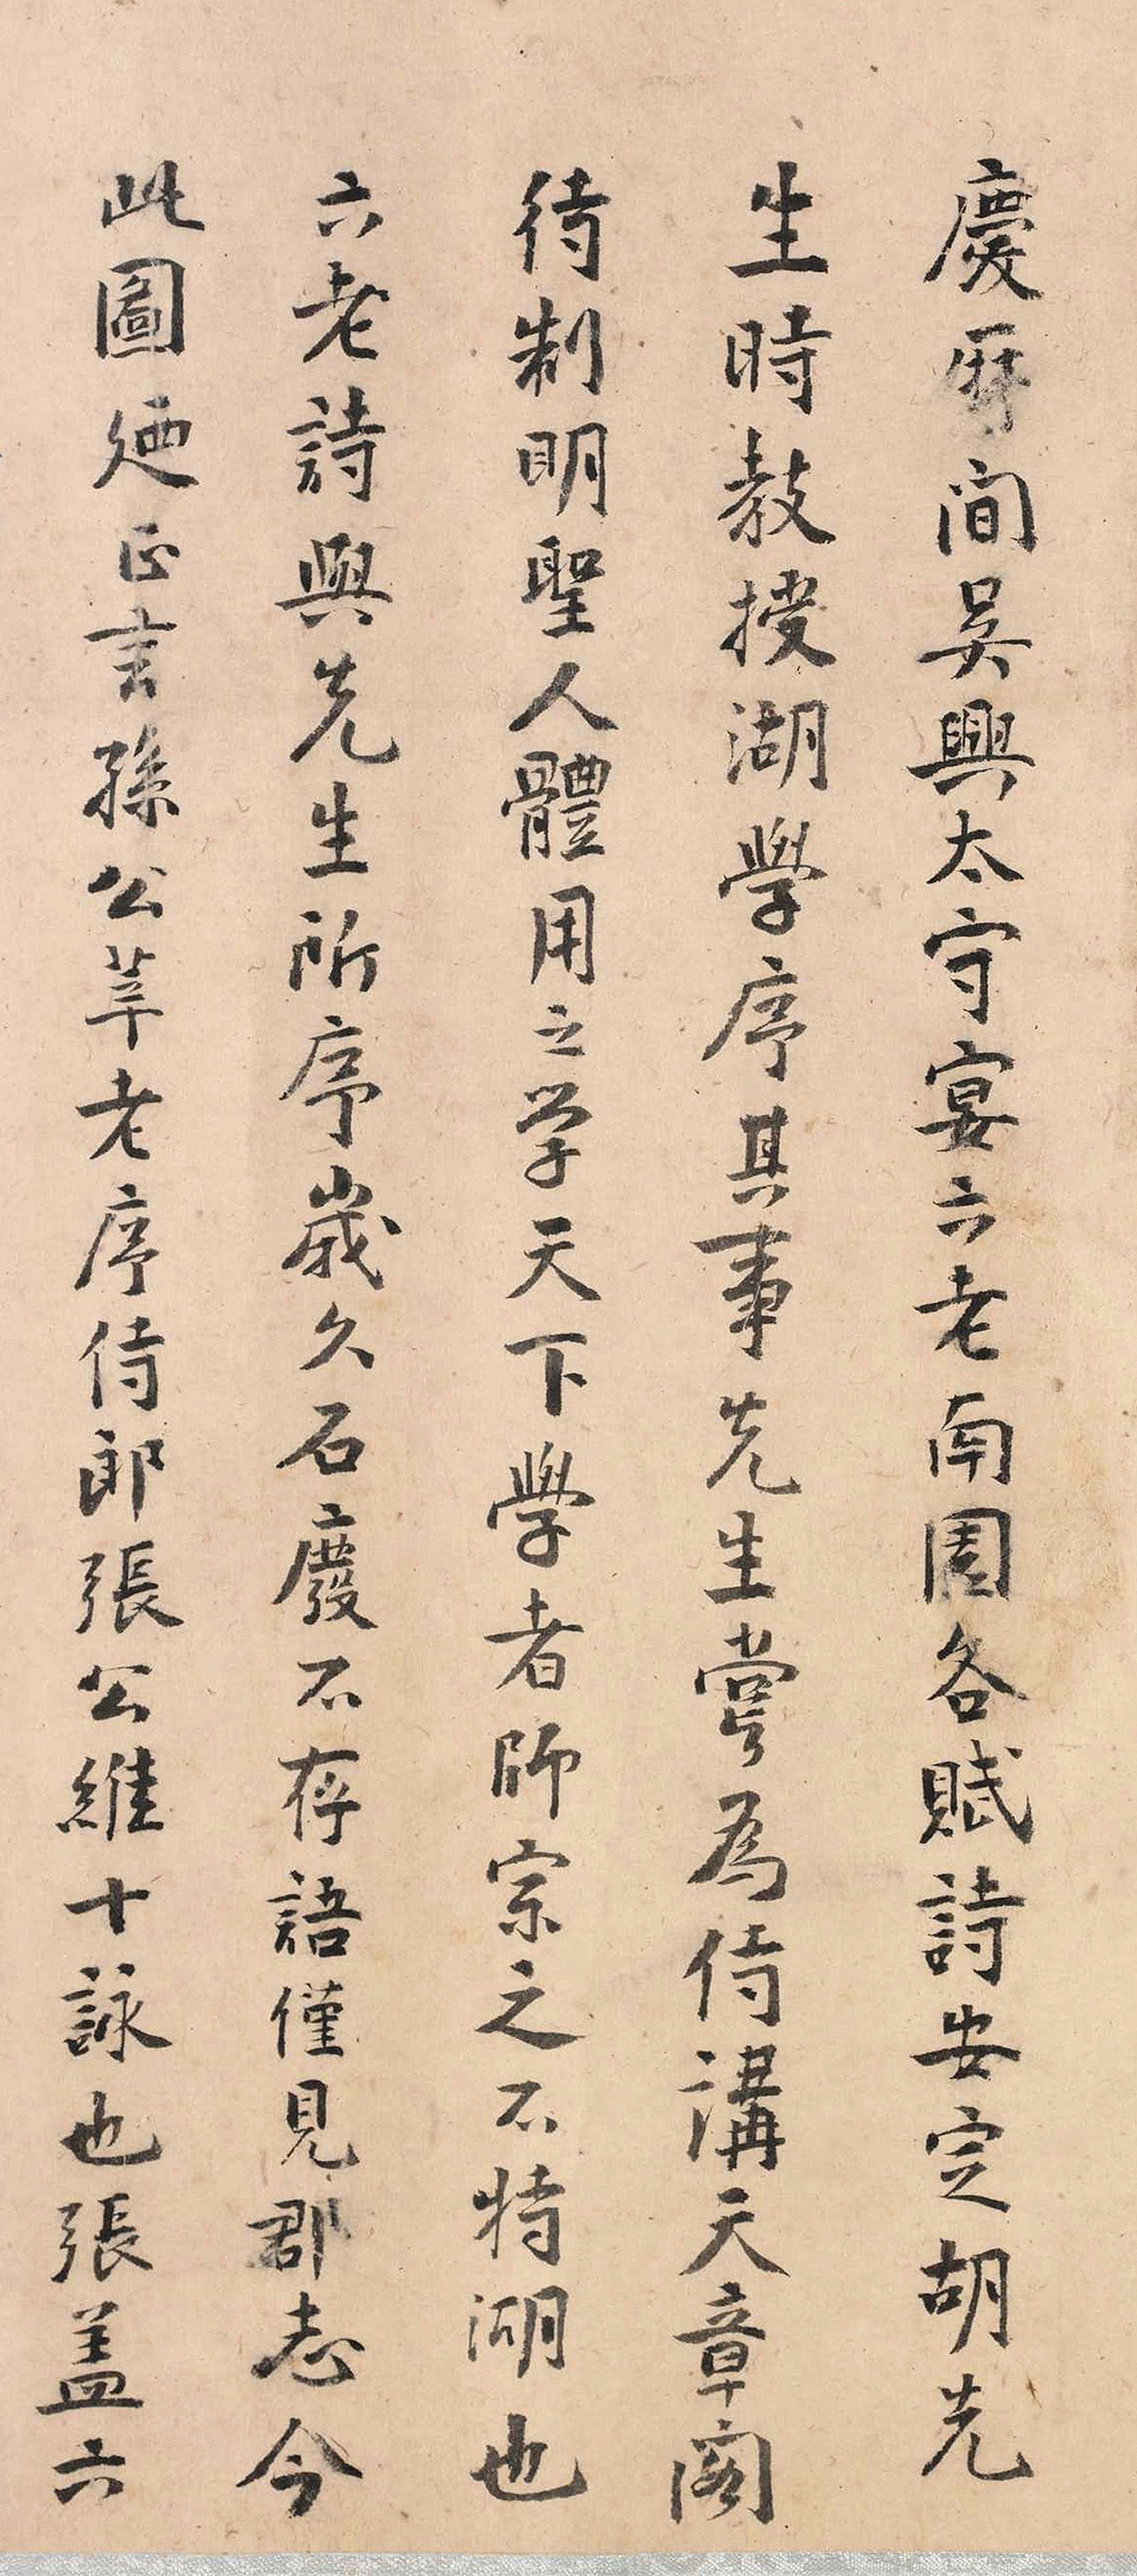 慶曆間吳興太守宴六老南園各賦詩安定胡先
生時教授湖學序其事先生嘗為侍講天章閣
待制明聖人體用之学天下學者師宗之不特湖也
六老詩與先生所序歲久石廢不存語僅見郡志今
此圖廼正言孫公莘老序侍郎張公維十詠也張盖六